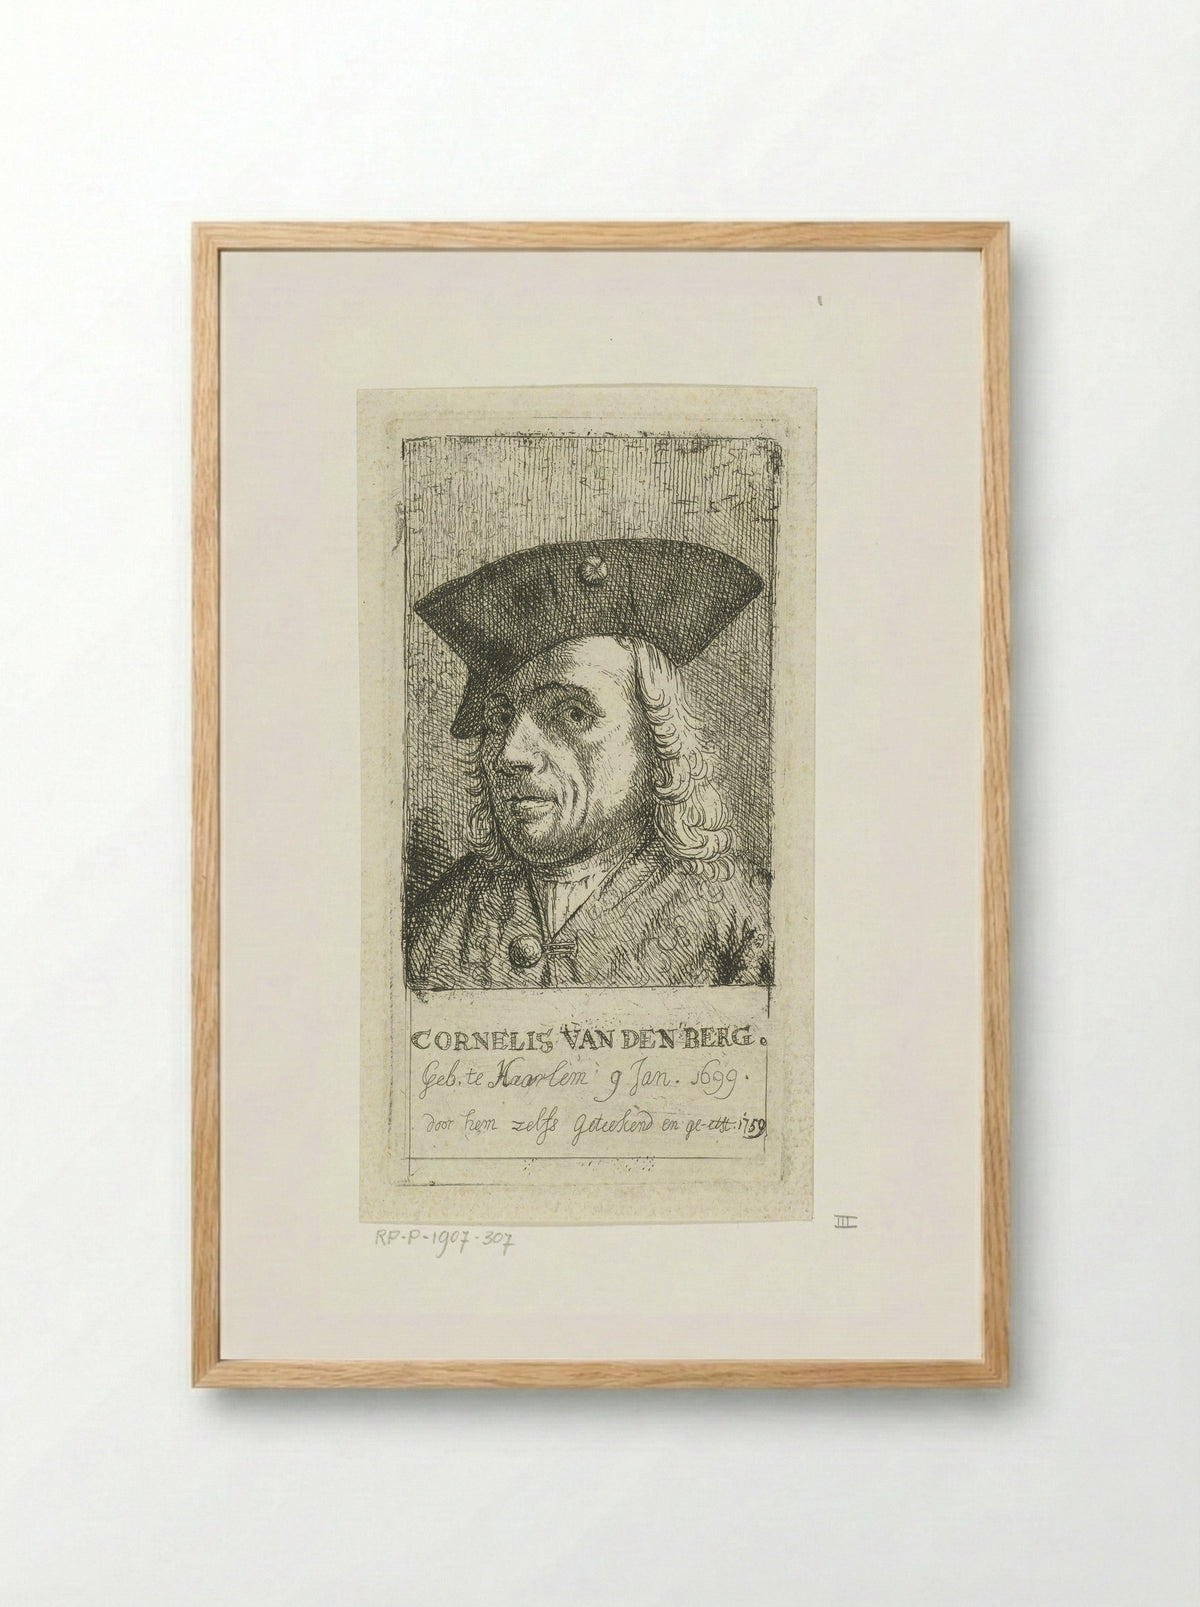 CORNELIS VAN DEN BERG.
Geb. te Haarlem 9 Jan. 1699.
door hem zelfs Geteekend en ge-etst. 1759
RP-P-1907-307
III